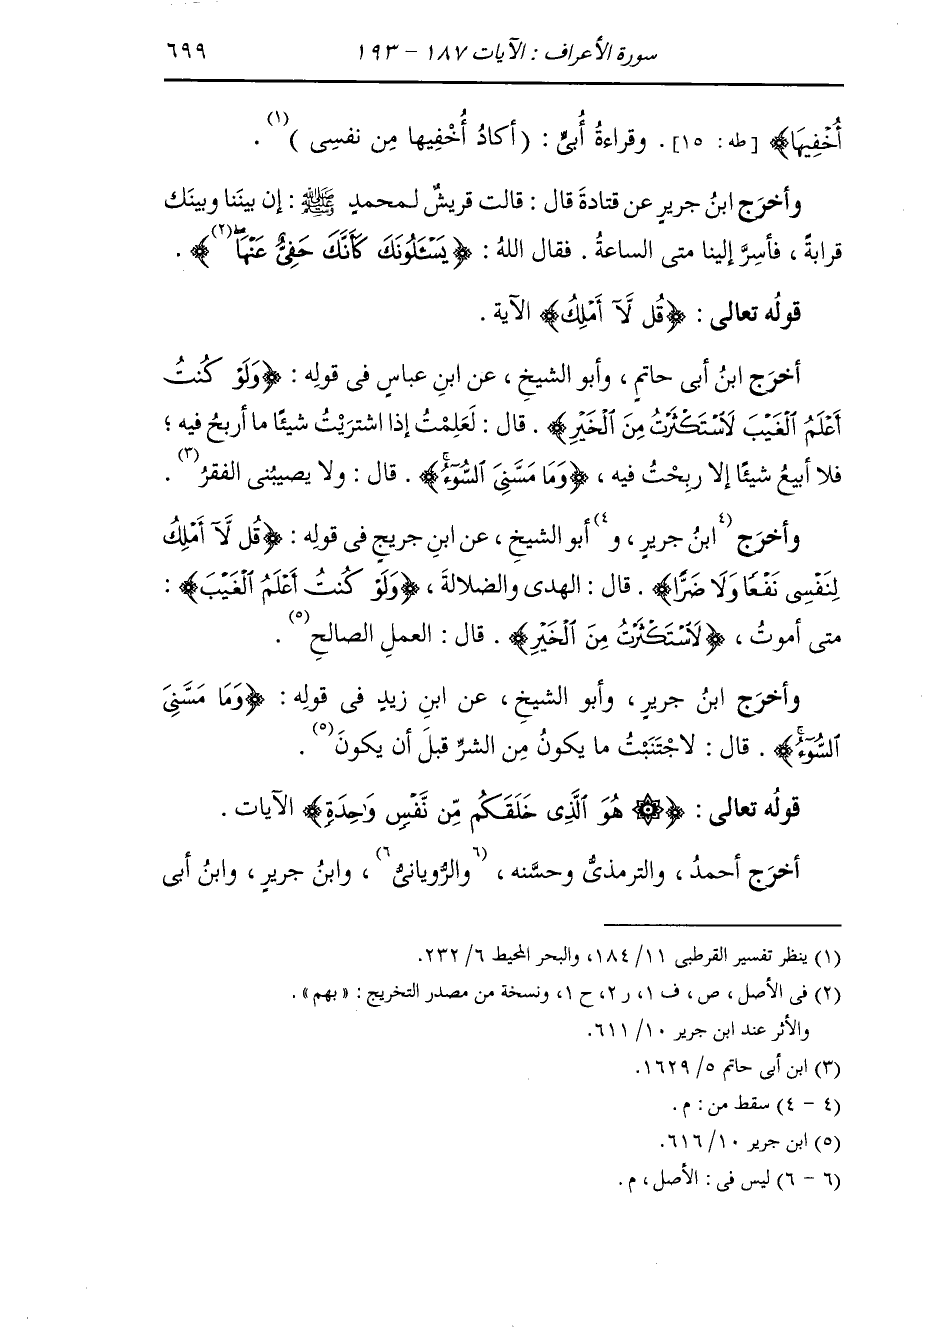 سورة الأعراف : الآيات ١٨٧ - ١٩٣ ٦٩٩
أُخْفِيهَا﴾ [طه: ١٥] . وقراءةُ أُبىٍّ : ( أكادُ أُخْفِيها مِن نفسِى )(١) .
وأخرَج ابنُ جريرٍ عن قتادةَ قال : قالت قريشٌ لمحمدٍ ﷺ : إن بينَنا وبينَك
قرابةً ، فأسِرَّ إلينا متى الساعةُ . فقال اللهُ : ﴿يَسْـَٔلُونَكَ كَأَنَّكَ حَفِىٌّ عَنْهَاۖ(٢)﴾ .
قولُه تعالى : ﴿قُل لَّآ أَمْلِكُ﴾ الآية .
أخرَج ابنُ أبى حاتمٍ ، وأبو الشيخِ ، عن ابنِ عباسٍ فى قولِه : ﴿وَلَوْ كُنتُ
أَعْلَمُ ٱلْغَيْبَ لَٱسْتَكْثَرْتُ مِنَ ٱلْخَيْرِ﴾ . قال : لَعَلِمْتُ إذا اشتريْتُ شيئًا ما أربحُ فيه ؛
فلا أبيعُ شيئًا إلا ربِحْتُ فيه ، ﴿وَمَا مَسَّنِىَ ٱلسُّوٓءُۚ﴾ . قال : ولا يصيبُنى الفقرُ(٣) .
وأخرَج (٤)ابنُ جريرٍ ، و(٤)أبو الشيخِ ، عن ابنِ جريجٍ فى قولِه : ﴿قُل لَّآ أَمْلِكُ
لِنَفْسِى نَفْعًا وَلَا ضَرًّا﴾ . قال : الهدى والضلالةَ ، ﴿وَلَوْ كُنتُ أَعْلَمُ ٱلْغَيْبَ﴾ :
متى أموتُ ، ﴿لَٱسْتَكْثَرْتُ مِنَ ٱلْخَيْرِ﴾ . قال : العملِ الصالحِ(٥) .
وأخرَج ابنُ جريرٍ ، وأبو الشيخِ ، عن ابنِ زيدٍ فى قولِه : ﴿وَمَا مَسَّنِىَ
ٱلسُّوٓءُۚ﴾ . قال : لاجْتَنَبْتُ ما يكونُ مِن الشرِّ قبلَ أن يكونَ(٥) .
قولُه تعالى : ﴿۞ هُوَ ٱلَّذِى خَلَقَكُم مِّن نَّفْسٍ وَٰحِدَةٍ﴾ الآيات .
أخرَج أحمدُ ، والترمذىُّ وحسَّنه ، (٦)والرُّويانىُّ(٦) ، وابنُ جريرٍ ، وابنُ أبى
(١) ينظر تفسير القرطبى ١١/ ١٨٤، والبحر المحيط ٦/ ٢٣٢.
(٢) فى الأصل ، ص ، ف ١، ر ٢، ح ١، ونسخة من مصدر التخريج : « بهم » .
والأثر عند ابن جرير ١٠/ ٦١١.
(٣) ابن أبى حاتم ٥/ ١٦٢٩.
(٤ - ٤) سقط من : م .
(٥) ابن جرير ١٠/ ٦١٦.
(٦ - ٦) ليس فى : الأصل ، م .